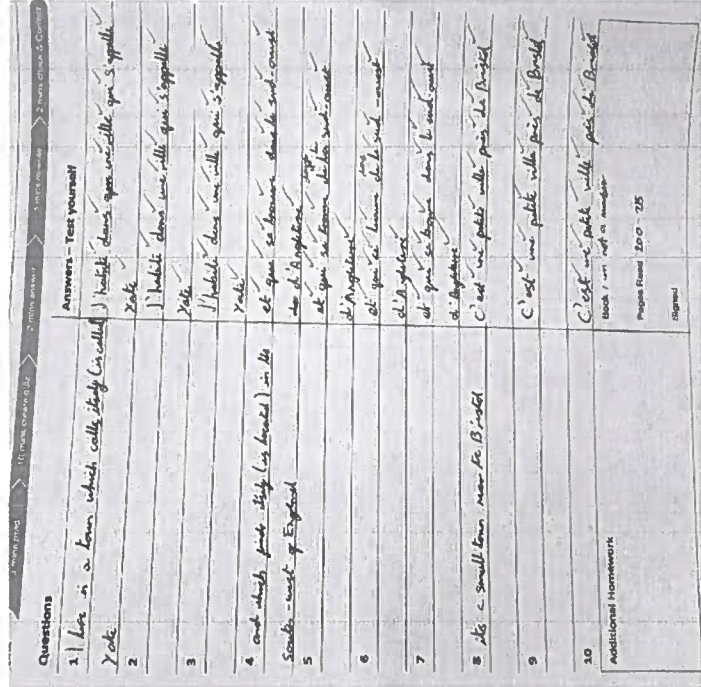 2 mins read
10 mins create quiz
2 mins answer
5 mins
2 mins check & Correct
Questions
Answers – Test yourself
1 I live in a town which calls itself (is called)
Yate
J'habite dans une ville qui s'appelle
Yate
2
J'habite dans une ville qui s'appelle
Yate
3
J'habite dans une ville qui s'appelle
Yate
4 and which finds itself (is located) in the
South-west of England
et qui se trouve dans le sud-ouest
d'Angleterre
5
et qui se trouve le sud-ouest
d'Angleterre
6
et qui se trouve dans le sud-ouest
d'Angleterre
7
et qui se trouve dans le sud-ouest
d'Angleterre
8 its a small town near to Bristol
C'est une petite ville près de Bristol
9
C'est une petite ville près de Bristol
10
C'est une petite ville près de Bristol
Additional Homework
Book I am not a number
Pages Read 200-215
Signed